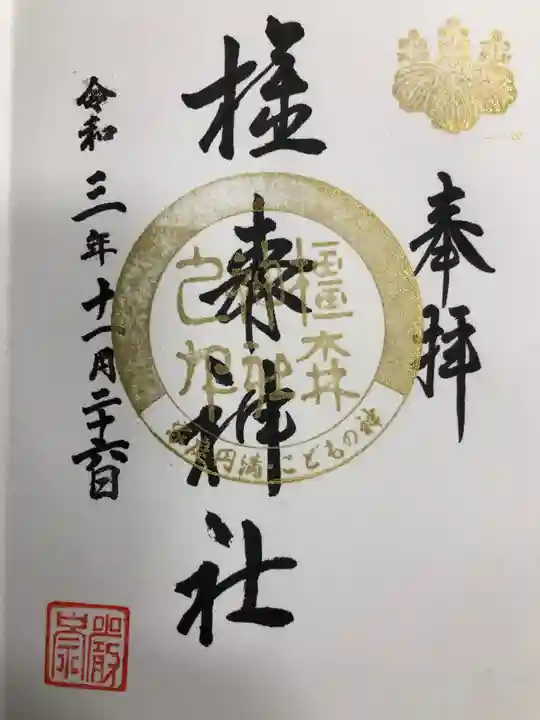 奉拝
橿森神社
橿森
神社
之印
家庭円満 こどもの神
令和三年十一月二十六日